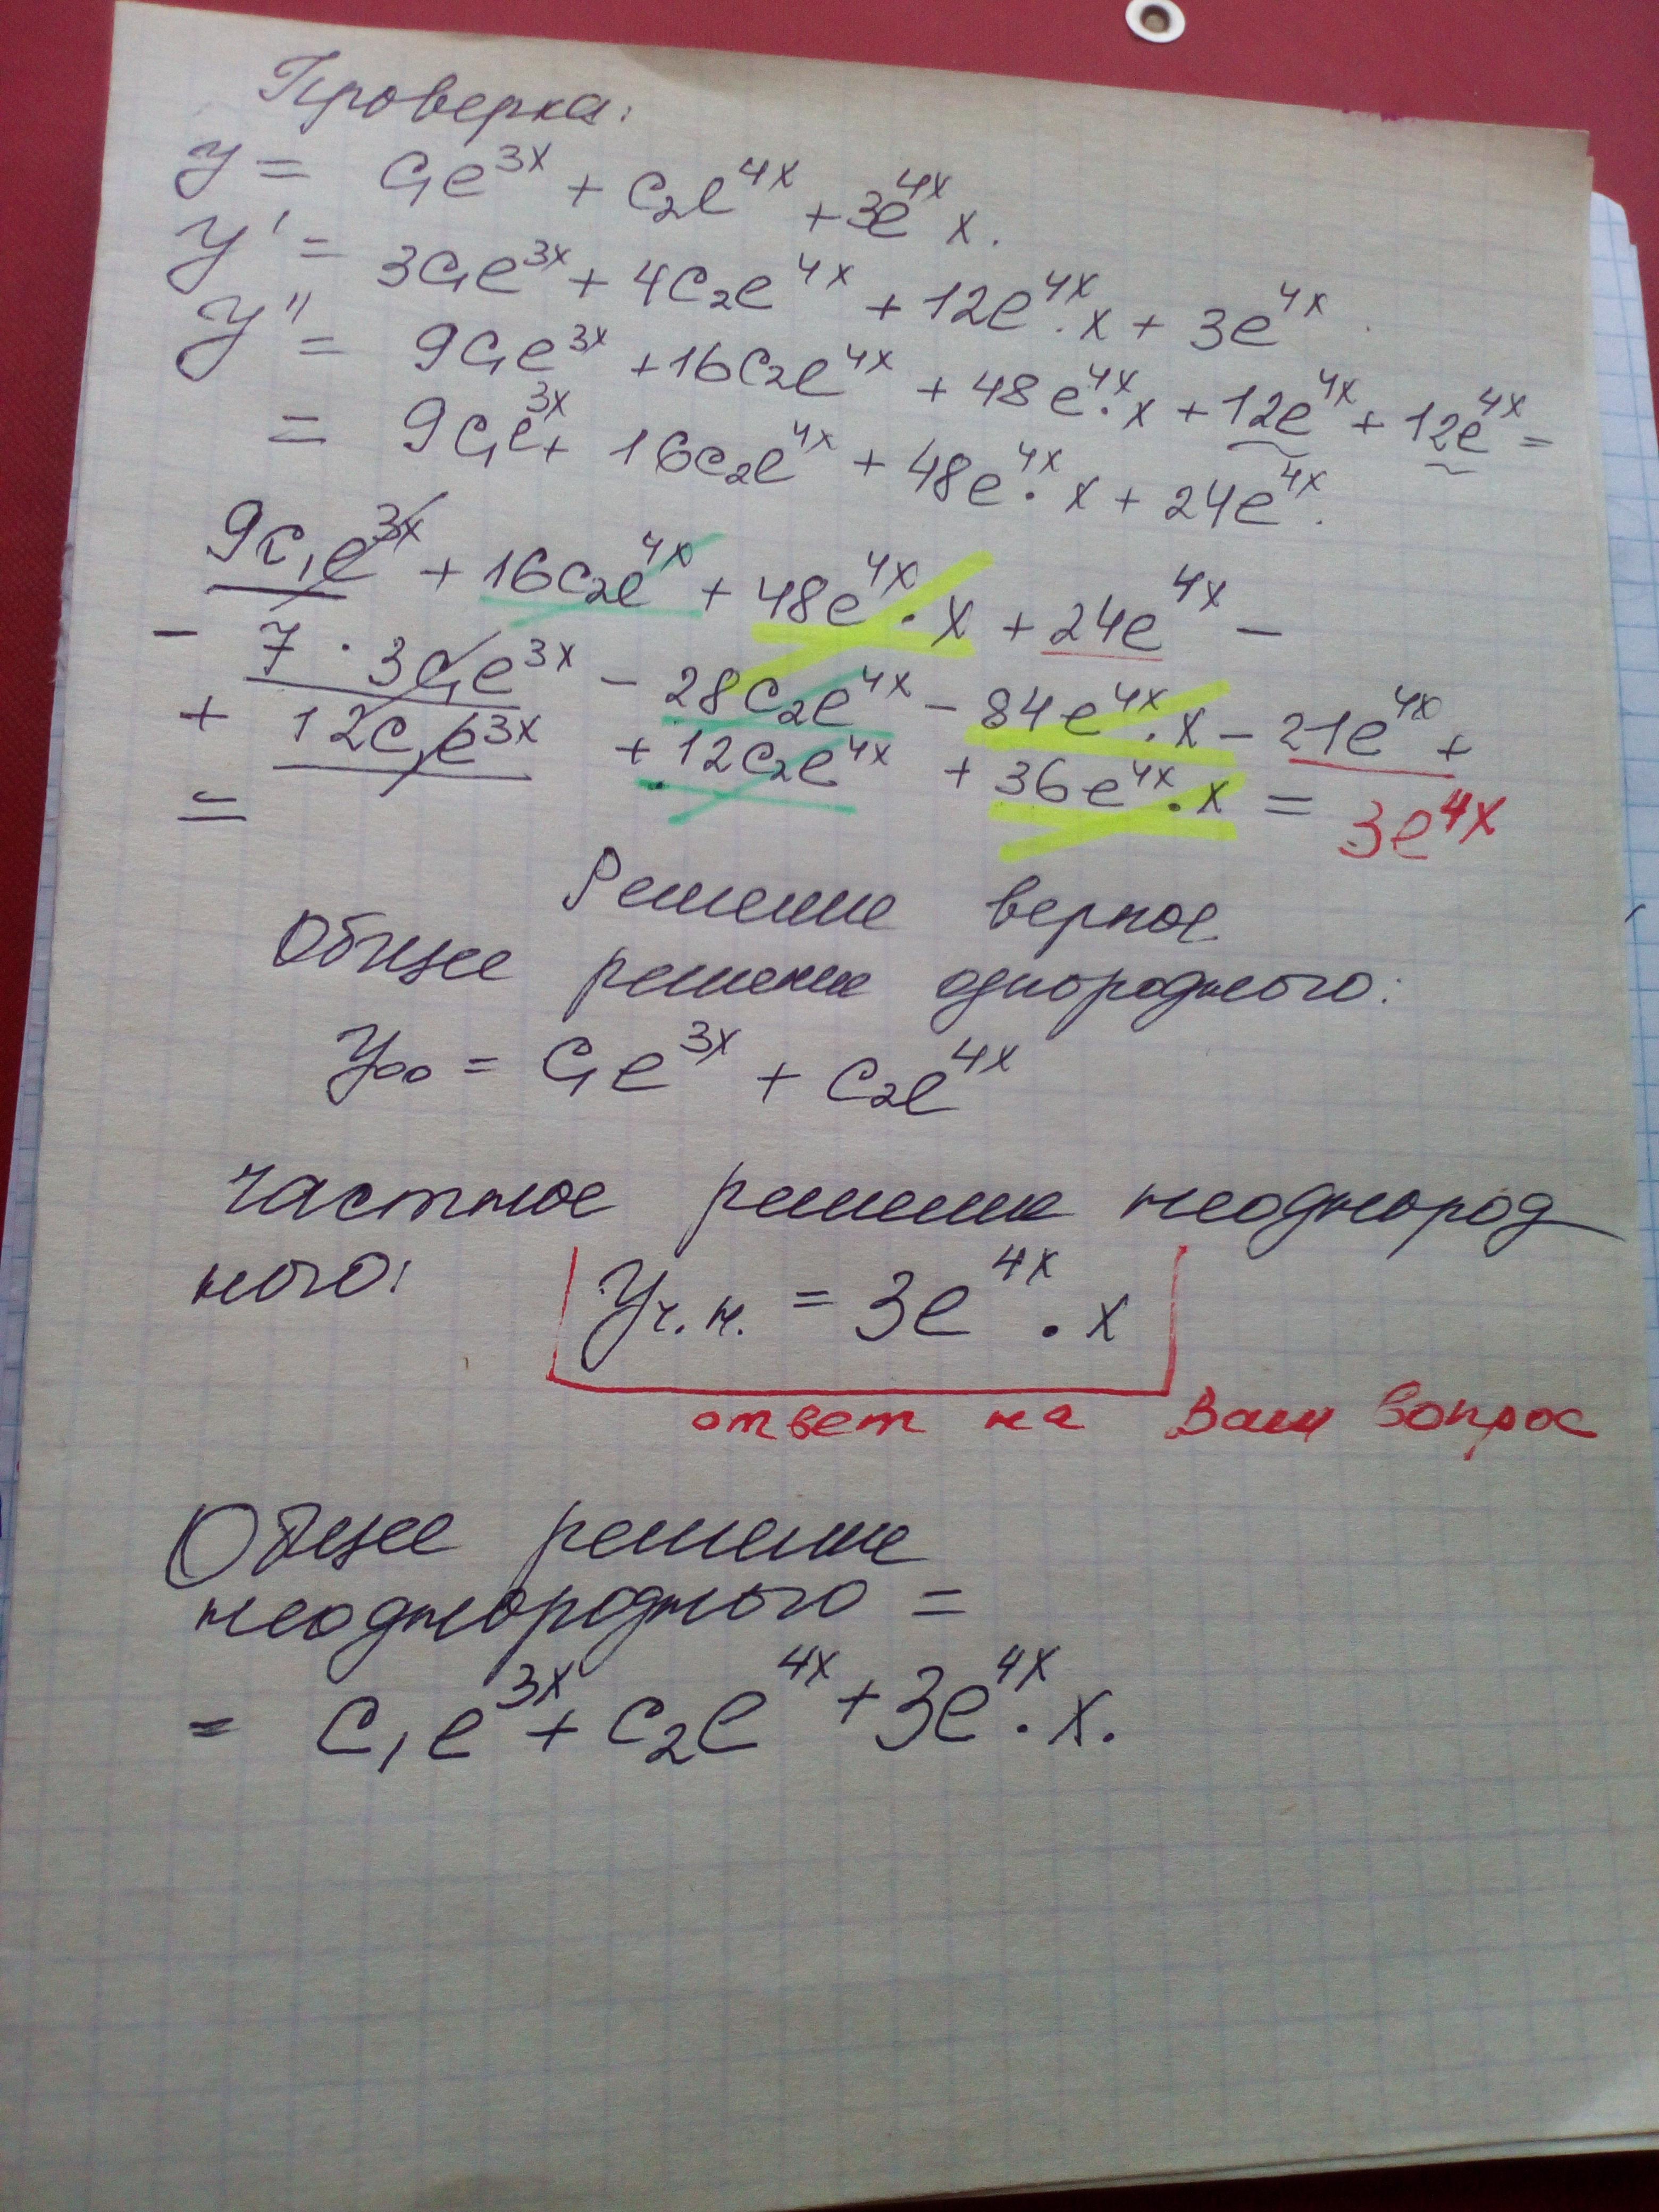 Проверка:
y = C₁e^3x + C₂e^4x + 3e^4x x.
y' = 3C₁e^3x + 4C₂e^4x + 12e^4x · x + 3e^4x.
y'' = 9C₁e^3x + 16C₂e^4x + 48e^4x · x + 12e^4x + 12e^4x =
= 9C₁e^3x + 16C₂e^4x + 48e^4x · x + 24e^4x.
9C₁e^3x + 16C₂e^4x + 48e^4x · x + 24e^4x −
− 7 · 3C₁e^3x − 28C₂e^4x − 84e^4x · x − 21e^4x +
+ 12C₁e^3x + 12C₂e^4x + 36e^4x · x = 3e^4x
=
Решение верное
Общее решение однородного:
yоо = C₁e^3x + C₂e^4x
частное решение неоднород
ного:
yч.н. = 3e^4x · x
ответ на Ваш вопрос
Общее решение
неоднородного =
= C₁e^3x + C₂e^4x + 3e^4x · x.